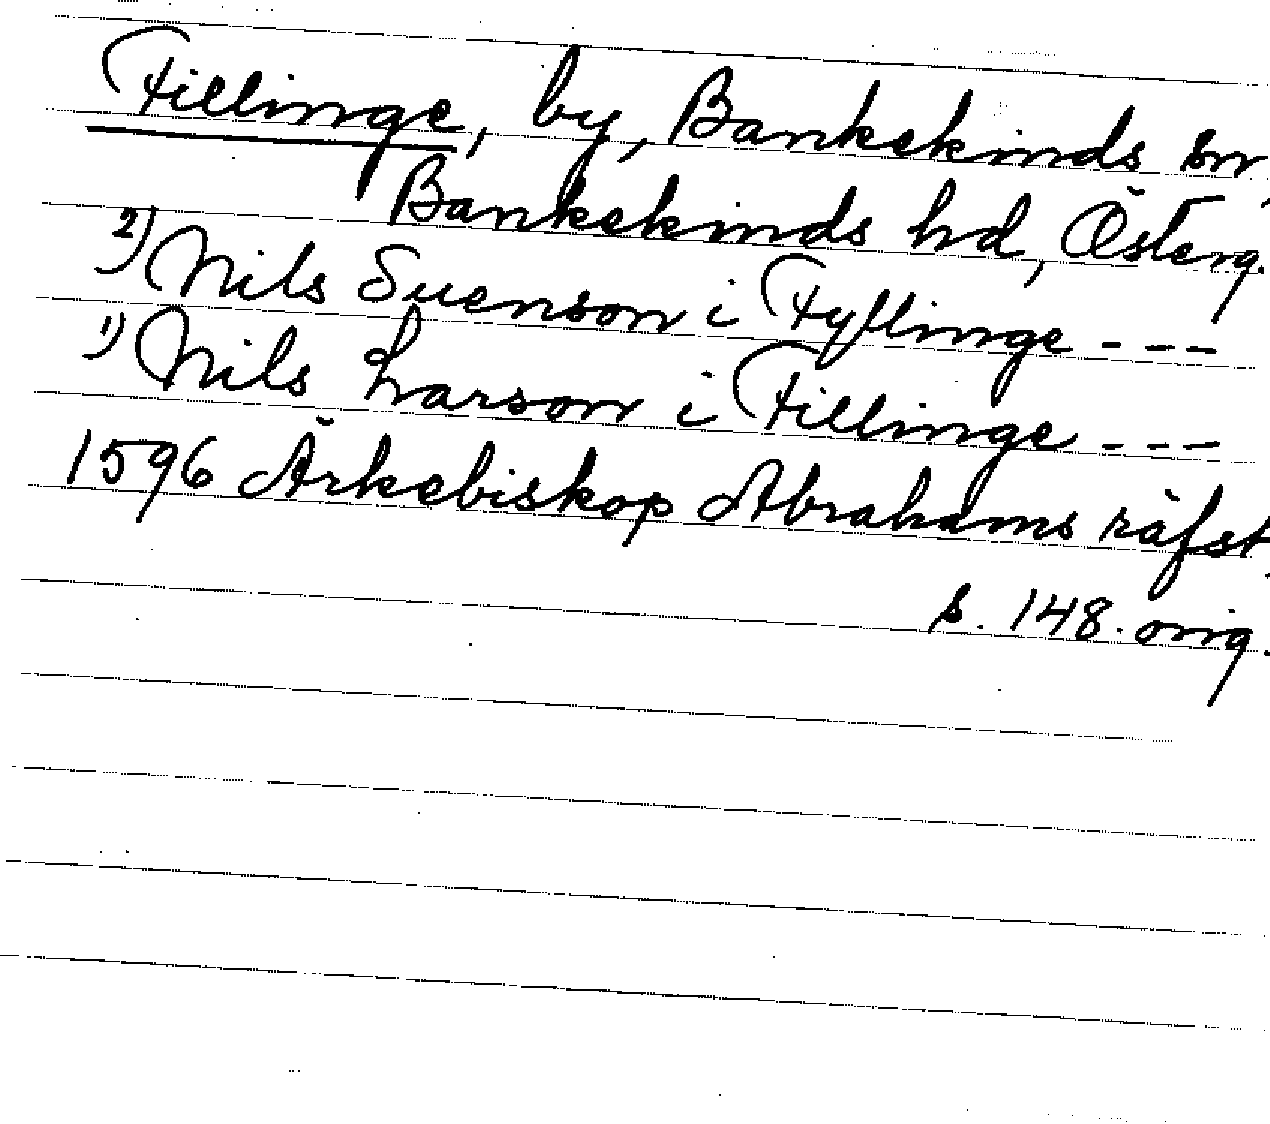 Fillinge, by, Bankekinds sn,
Bankekinds hd, Österg.
2) Nils Suenson i Fyllinge ---
1) Nils Larson i Fillinge ---
1596 Ärkebiskop Abrahams räfst
s. 148. orig.